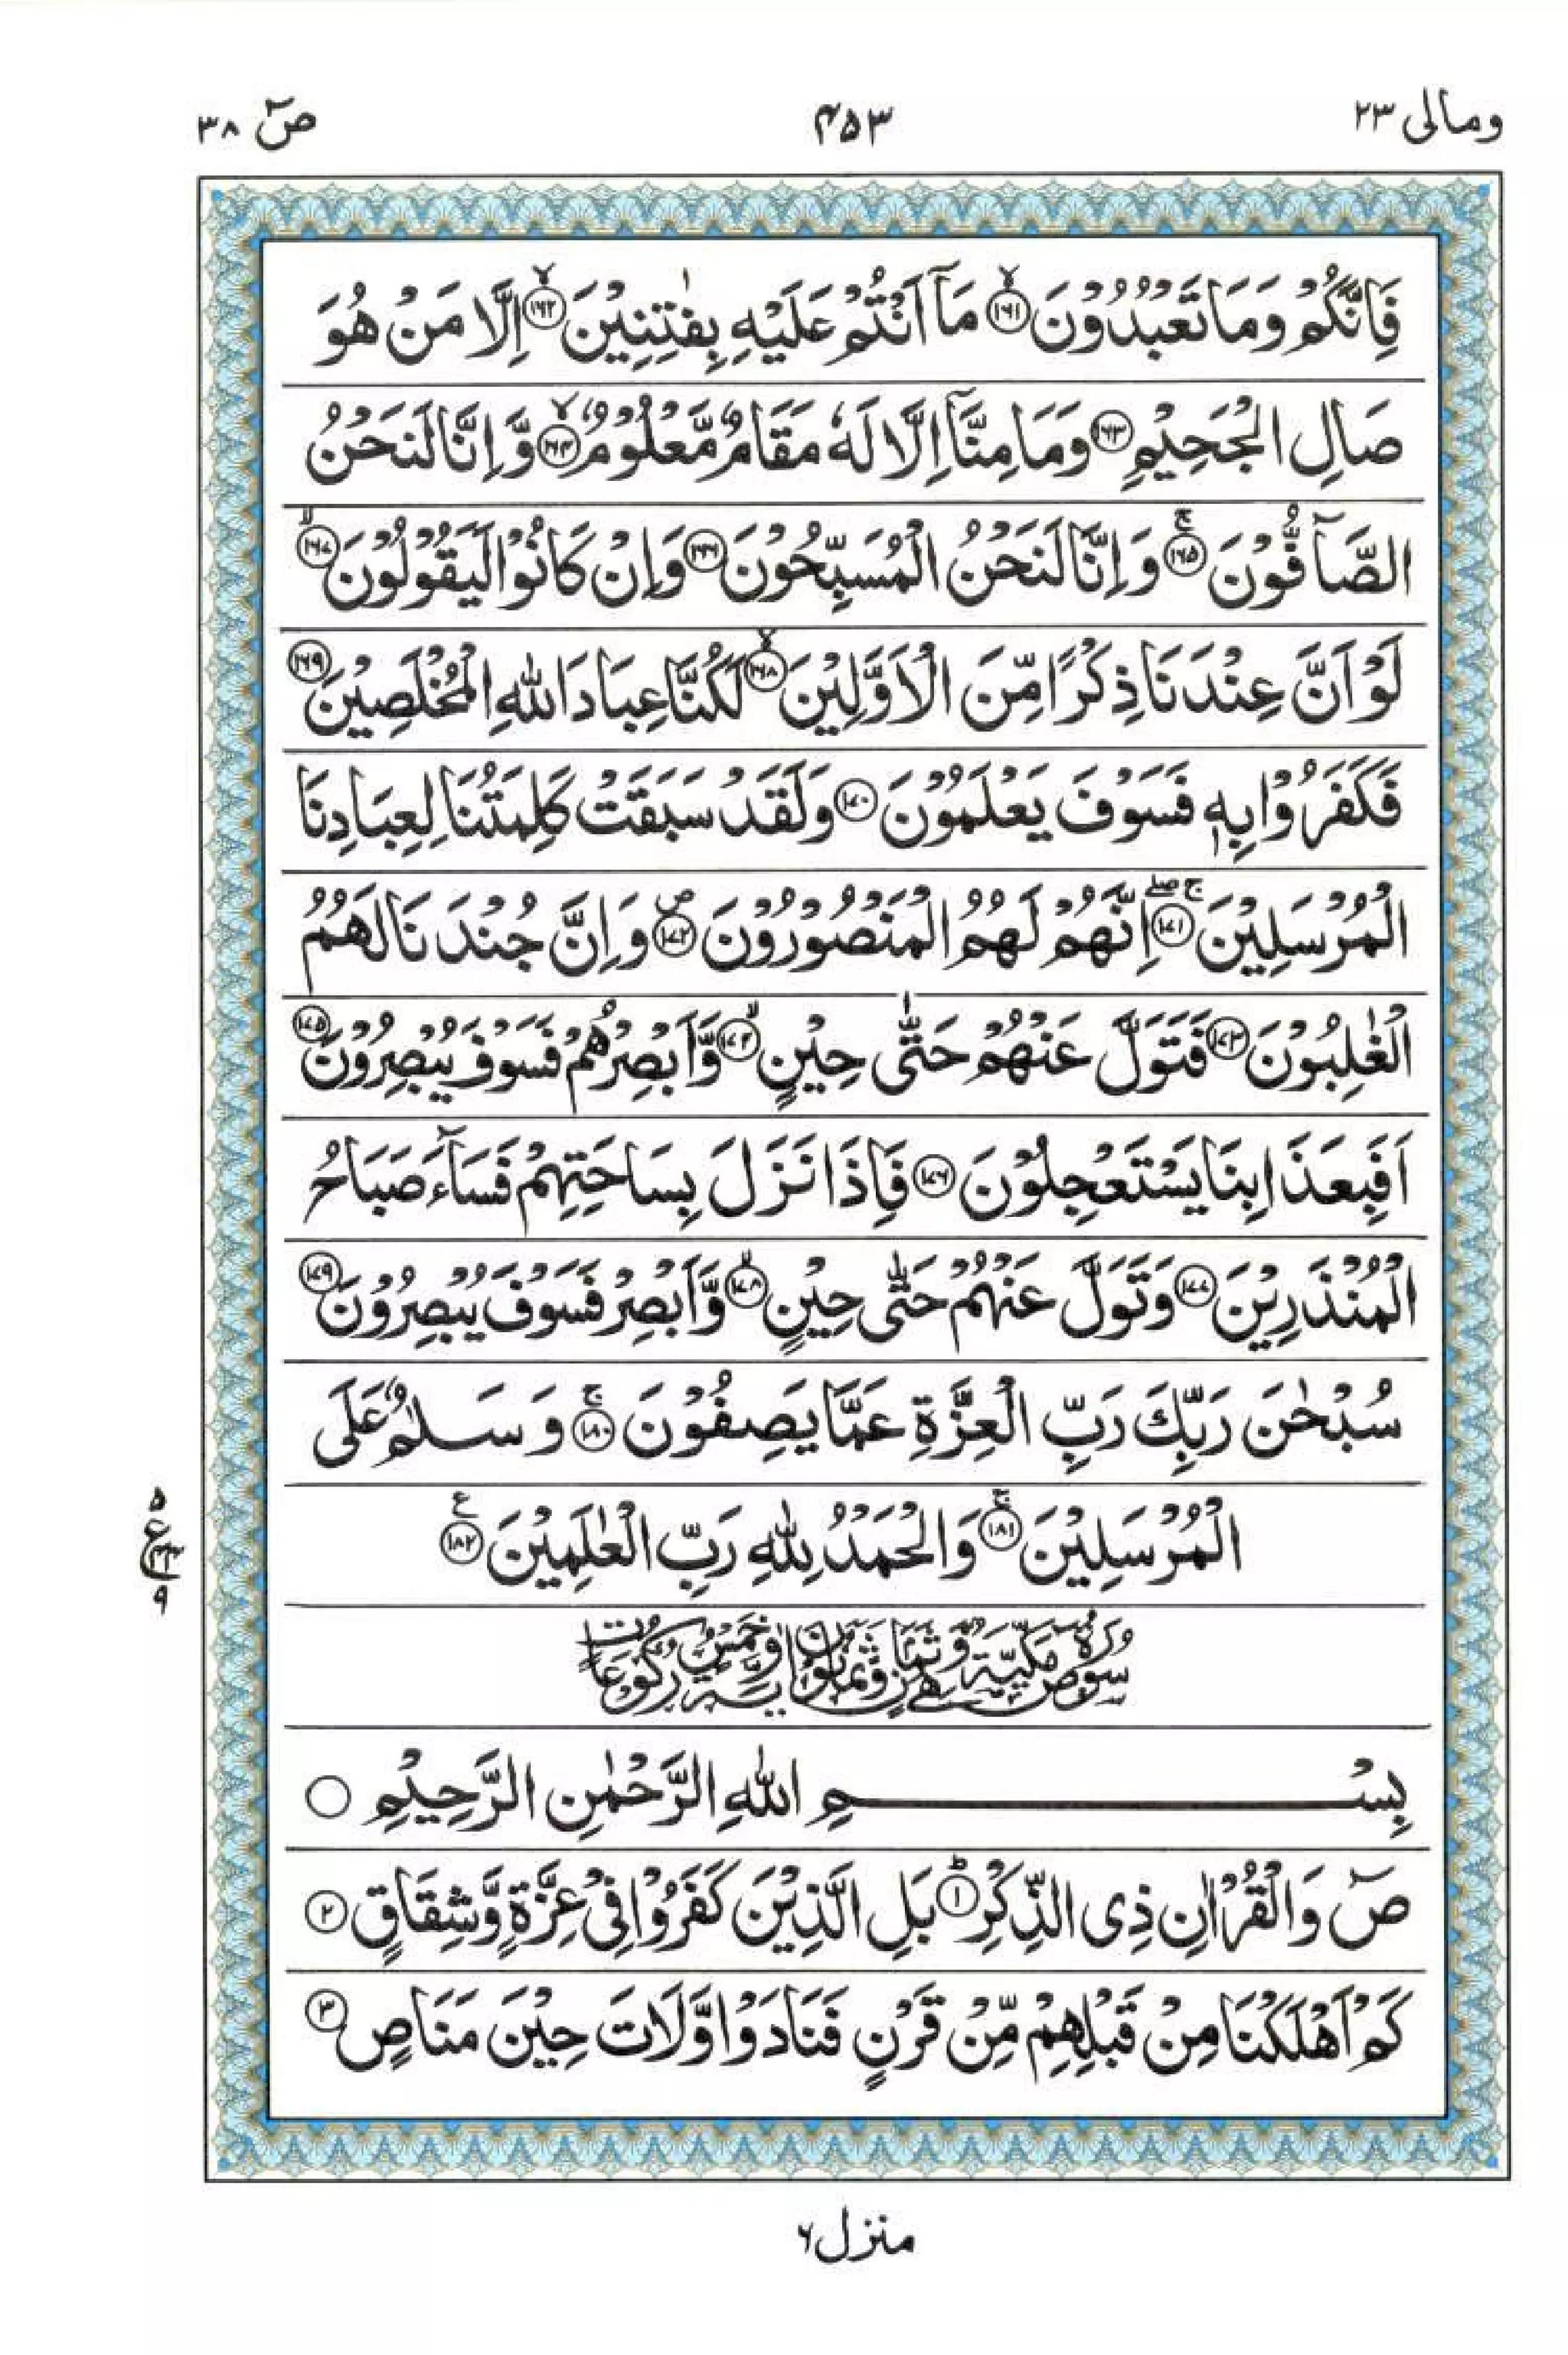 ومالی ۲۳ ۴۵۳ صٓ ۳۸
فَاِنَّكُمْ وَمَا تَعْبُدُوْنَ ﴿۱۶۱﴾ۙ مَاۤ اَنْتُمْ عَلَيْهِ بِفٰتِنِيْنَ ﴿۱۶۲﴾ۙ اِلَّا مَنْ هُوَ
صَالِ الْجَحِيْمِ ﴿۱۶۳﴾ وَمَا مِنَّاۤ اِلَّا لَهٗ مَقَامٌ مَّعْلُوْمٌ ﴿۱۶۴﴾ۙ وَّ اِنَّا لَنَحْنُ
الصَّآفُّوْنَ ﴿۱۶۵﴾ۚ وَ اِنَّا لَنَحْنُ الْمُسَبِّحُوْنَ ﴿۱۶۶﴾ وَاِنْ كَانُوْا لَيَقُوْلُوْنَ ﴿۱۶۷﴾ۙ
لَوْ اَنَّ عِنْدَنَا ذِكْرًا مِّنَ الْاَوَّلِيْنَ ﴿۱۶۸﴾ۙ لَكُنَّا عِبَادَ اللّٰهِ الْمُخْلَصِيْنَ ﴿۱۶۹﴾
فَكَفَرُوْا بِهٖ فَسَوْفَ يَعْلَمُوْنَ ﴿۱۷۰﴾ وَلَقَدْ سَبَقَتْ كَلِمَتُنَا لِعِبَادِنَا
الْمُرْسَلِيْنَ ﴿۱۷۱﴾ۚۖ اِنَّهُمْ لَهُمُ الْمَنْصُوْرُوْنَ ﴿۱۷۲﴾ص وَ اِنَّ جُنْدَنَا لَهُمُ
الْغٰلِبُوْنَ ﴿۱۷۳﴾ فَتَوَلَّ عَنْهُمْ حَتّٰى حِيْنٍ ﴿۱۷۴﴾ۙ وَّاَبْصِرْهُمْ فَسَوْفَ يُبْصِرُوْنَ ﴿۱۷۵﴾
اَفَبِعَذَابِنَا يَسْتَعْجِلُوْنَ ﴿۱۷۶﴾ فَاِذَا نَزَلَ بِسَاحَتِهِمْ فَسَآءَ صَبَاحُ
الْمُنْذَرِيْنَ ﴿۱۷۷﴾ وَتَوَلَّ عَنْهُمْ حَتّٰى حِيْنٍ ﴿۱۷۸﴾ۙ وَّاَبْصِرْ فَسَوْفَ يُبْصِرُوْنَ ﴿۱۷۹﴾
سُبْحٰنَ رَبِّكَ رَبِّ الْعِزَّةِ عَمَّا يَصِفُوْنَ ﴿۱۸۰﴾ۚ وَ سَلٰمٌ عَلَى
الْمُرْسَلِيْنَ ﴿۱۸۱﴾ۚ وَالْحَمْدُ لِلّٰهِ رَبِّ الْعٰلَمِيْنَ ﴿۱۸۲﴾ع
۵ ع ۴۳ ۹
سُوْرَةُ صٓ مَكِّيَّةٌ وَّهِيَ ثَمَانٌ وَّثَمَانُوْنَ اٰيَةً وَّخَمْسُ رُكُوْعَاتٍ
بِسْمِ اللّٰهِ الرَّحْمٰنِ الرَّحِيْمِ ○
صٓ وَالْقُرْاٰنِ ذِى الذِّكْرِ ﴿۱﴾ؕ بَلِ الَّذِيْنَ كَفَرُوْا فِيْ عِزَّةٍ وَّشِقَاقٍ ﴿۲﴾
كَمْ اَهْلَكْنَا مِنْ قَبْلِهِمْ مِّنْ قَرْنٍ فَنَادَوْا وَّلَاتَ حِيْنَ مَنَاصٍ ﴿۳﴾
منزل ۶